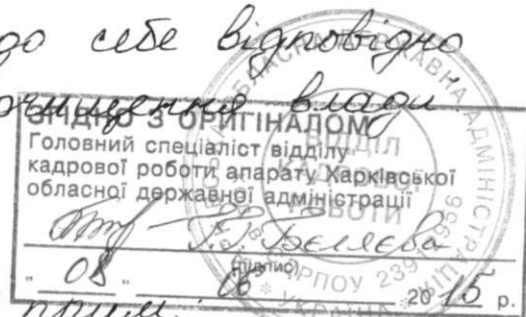 до себе відповідно
очищення влади
ЗГІДНО З ОРИГІНАЛОМ
Головний спеціаліст відділу
кадрової роботи апарату Харківської
обласної державної адміністрації
Бєляєва
(підпис)
"08" 06 2015 р.
ВІДДІЛ
РОБОТИ
УКРАЇНА